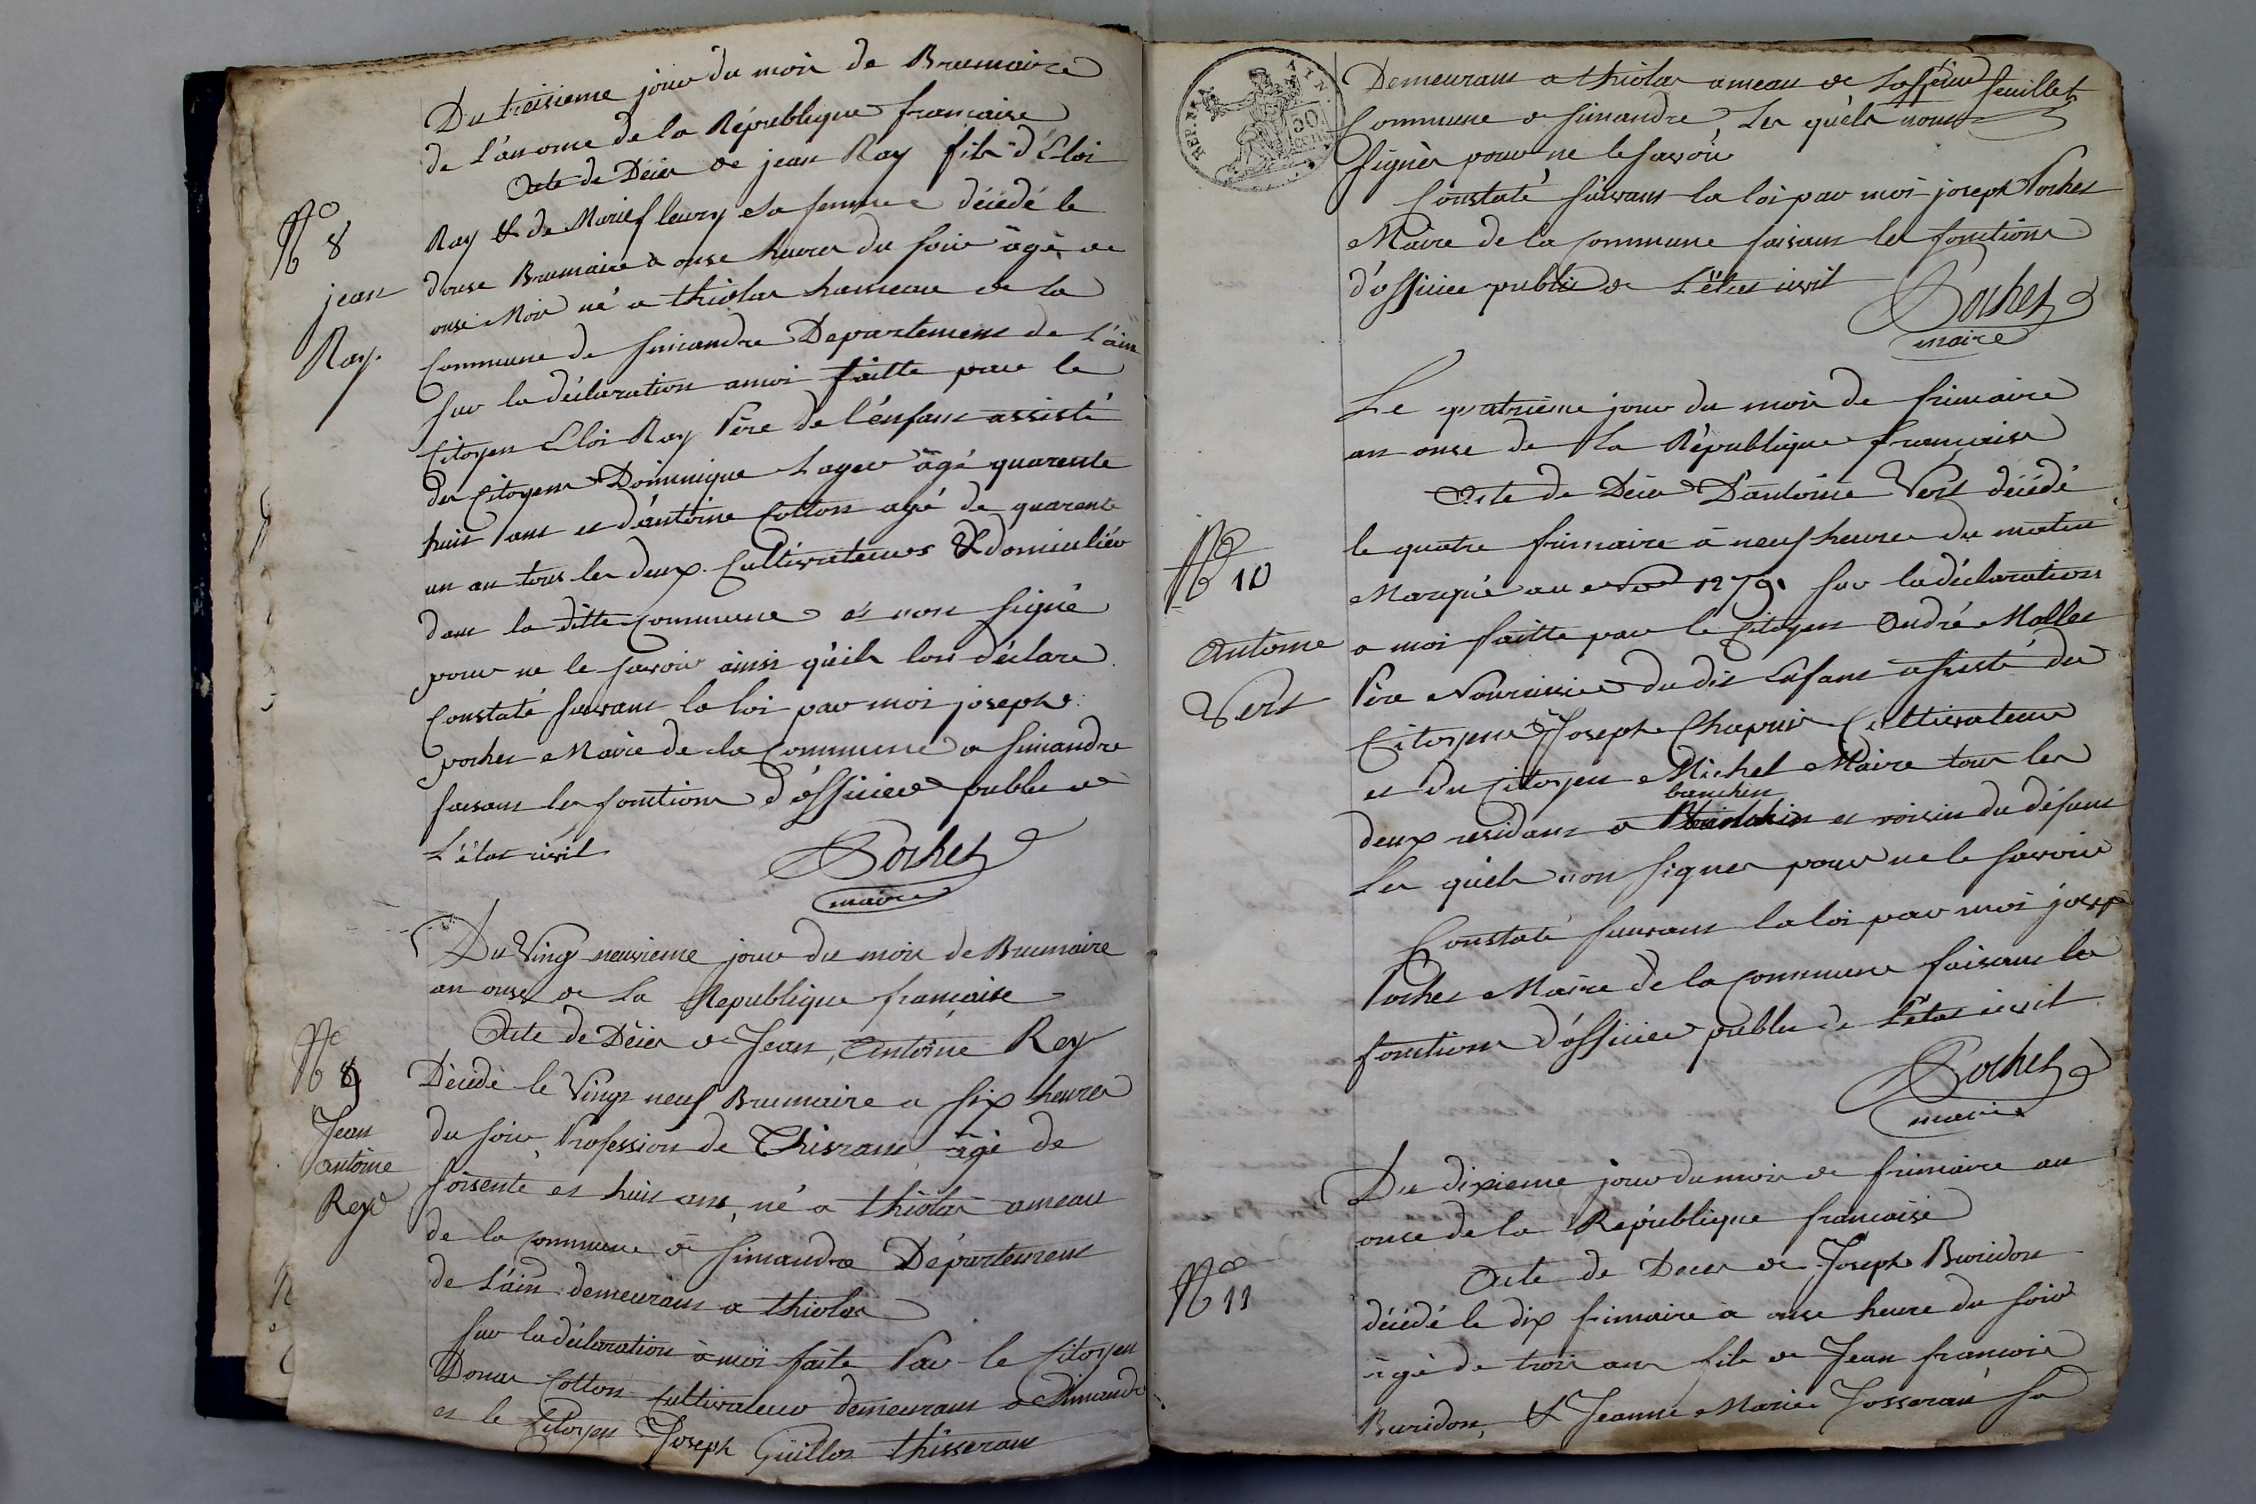 Du treisieme jour du mois de Brumaire
de L'an onse de la République francaise
Acte de Décés de jean Ray fils d'Eloi
No 8
jean
Ray
Ray & de Marie fleury sa femme décédé le
douse Brumaire a onse heures du soir âgé de
onse Mois né a thiolas hameau de la
Commune de Simandre Departement de L'ain
sur la déclaration a moi faitte par le
Citoyen Eloi Ray Père de l'énfant assisté
des Citoyens Dominique Layer âgé quarente
huit ans et d'antoine Cotton agé de quarente
un an tous les deux Cultivateurs & domiciliér
dans la ditte commune et non signé
pour ne le savoir ainsi qu'ils lon déclaré
Constaté suivant la loi par moi joseph
pochet Maire de la Commune a simandre
faisant les fonctions d'officier public de
L'état civil
Pochet
maire
Du Vingt neuvieme jour du mois de Brumaire
an onse de La Republique francaise
No 9
Jean
antoine
Rey
Acte de Décés de Jean, Antoine Rey
Décedé le Vingt neuf Brumaire a six heures
du soir, Profession de Thisrant âgé de
soisente et huit ans, né a thiolas ameau
de la commune de simandre Département
de L'ain demeurant a thiolas
sur la déclaration à moi faite Par le Citoyen
Donat Cotton Cultivateur demeurant a Simandre
et le Citoyen Joseph Guillot thisserant
Demeurant a thiolas ameau de feuillet
Commune de simandre Les quéls nont
signér pour ne le savoir
Constaté suivant la loi par moi joseph Pochet
Maire de la commune faisant les fonctions
d'officier public de L'état civil
Pochet
maire
Le quatrieme jour du mois de frimaire
an onse de La République francaise
No 10
Antoine
Vert
Acte de Décés D'antoine Vert décédé
le quatre frimaire à neuf heures du matin
Marqué au No 1279 sur la déclaration
a moi faitte par le Citoyen André Mallet
Père Nouricier du dit Enfant assisté du
Citoyen Joseph Chapuis Cultivateur
et Du Citoyen Michel Maire tous les
deux residant a banchin et voisin du défunt
Les quéls non signer pour ne le savoir
Constaté suivant la loi par moi josep
Pochet Maire de la commune faisant les
fonctions d'officier public de L'état civil
Pochet
maire
Du dixieme jour du mois de frimaire an
onse de la République francaise
No 11
Acte de Deces de Joseph Buridon
décédé le dix frimaire à onse heure du soir
âgé de trois ans fils de Jean francois
Buridon, & Jeanne Marie Josserant sa